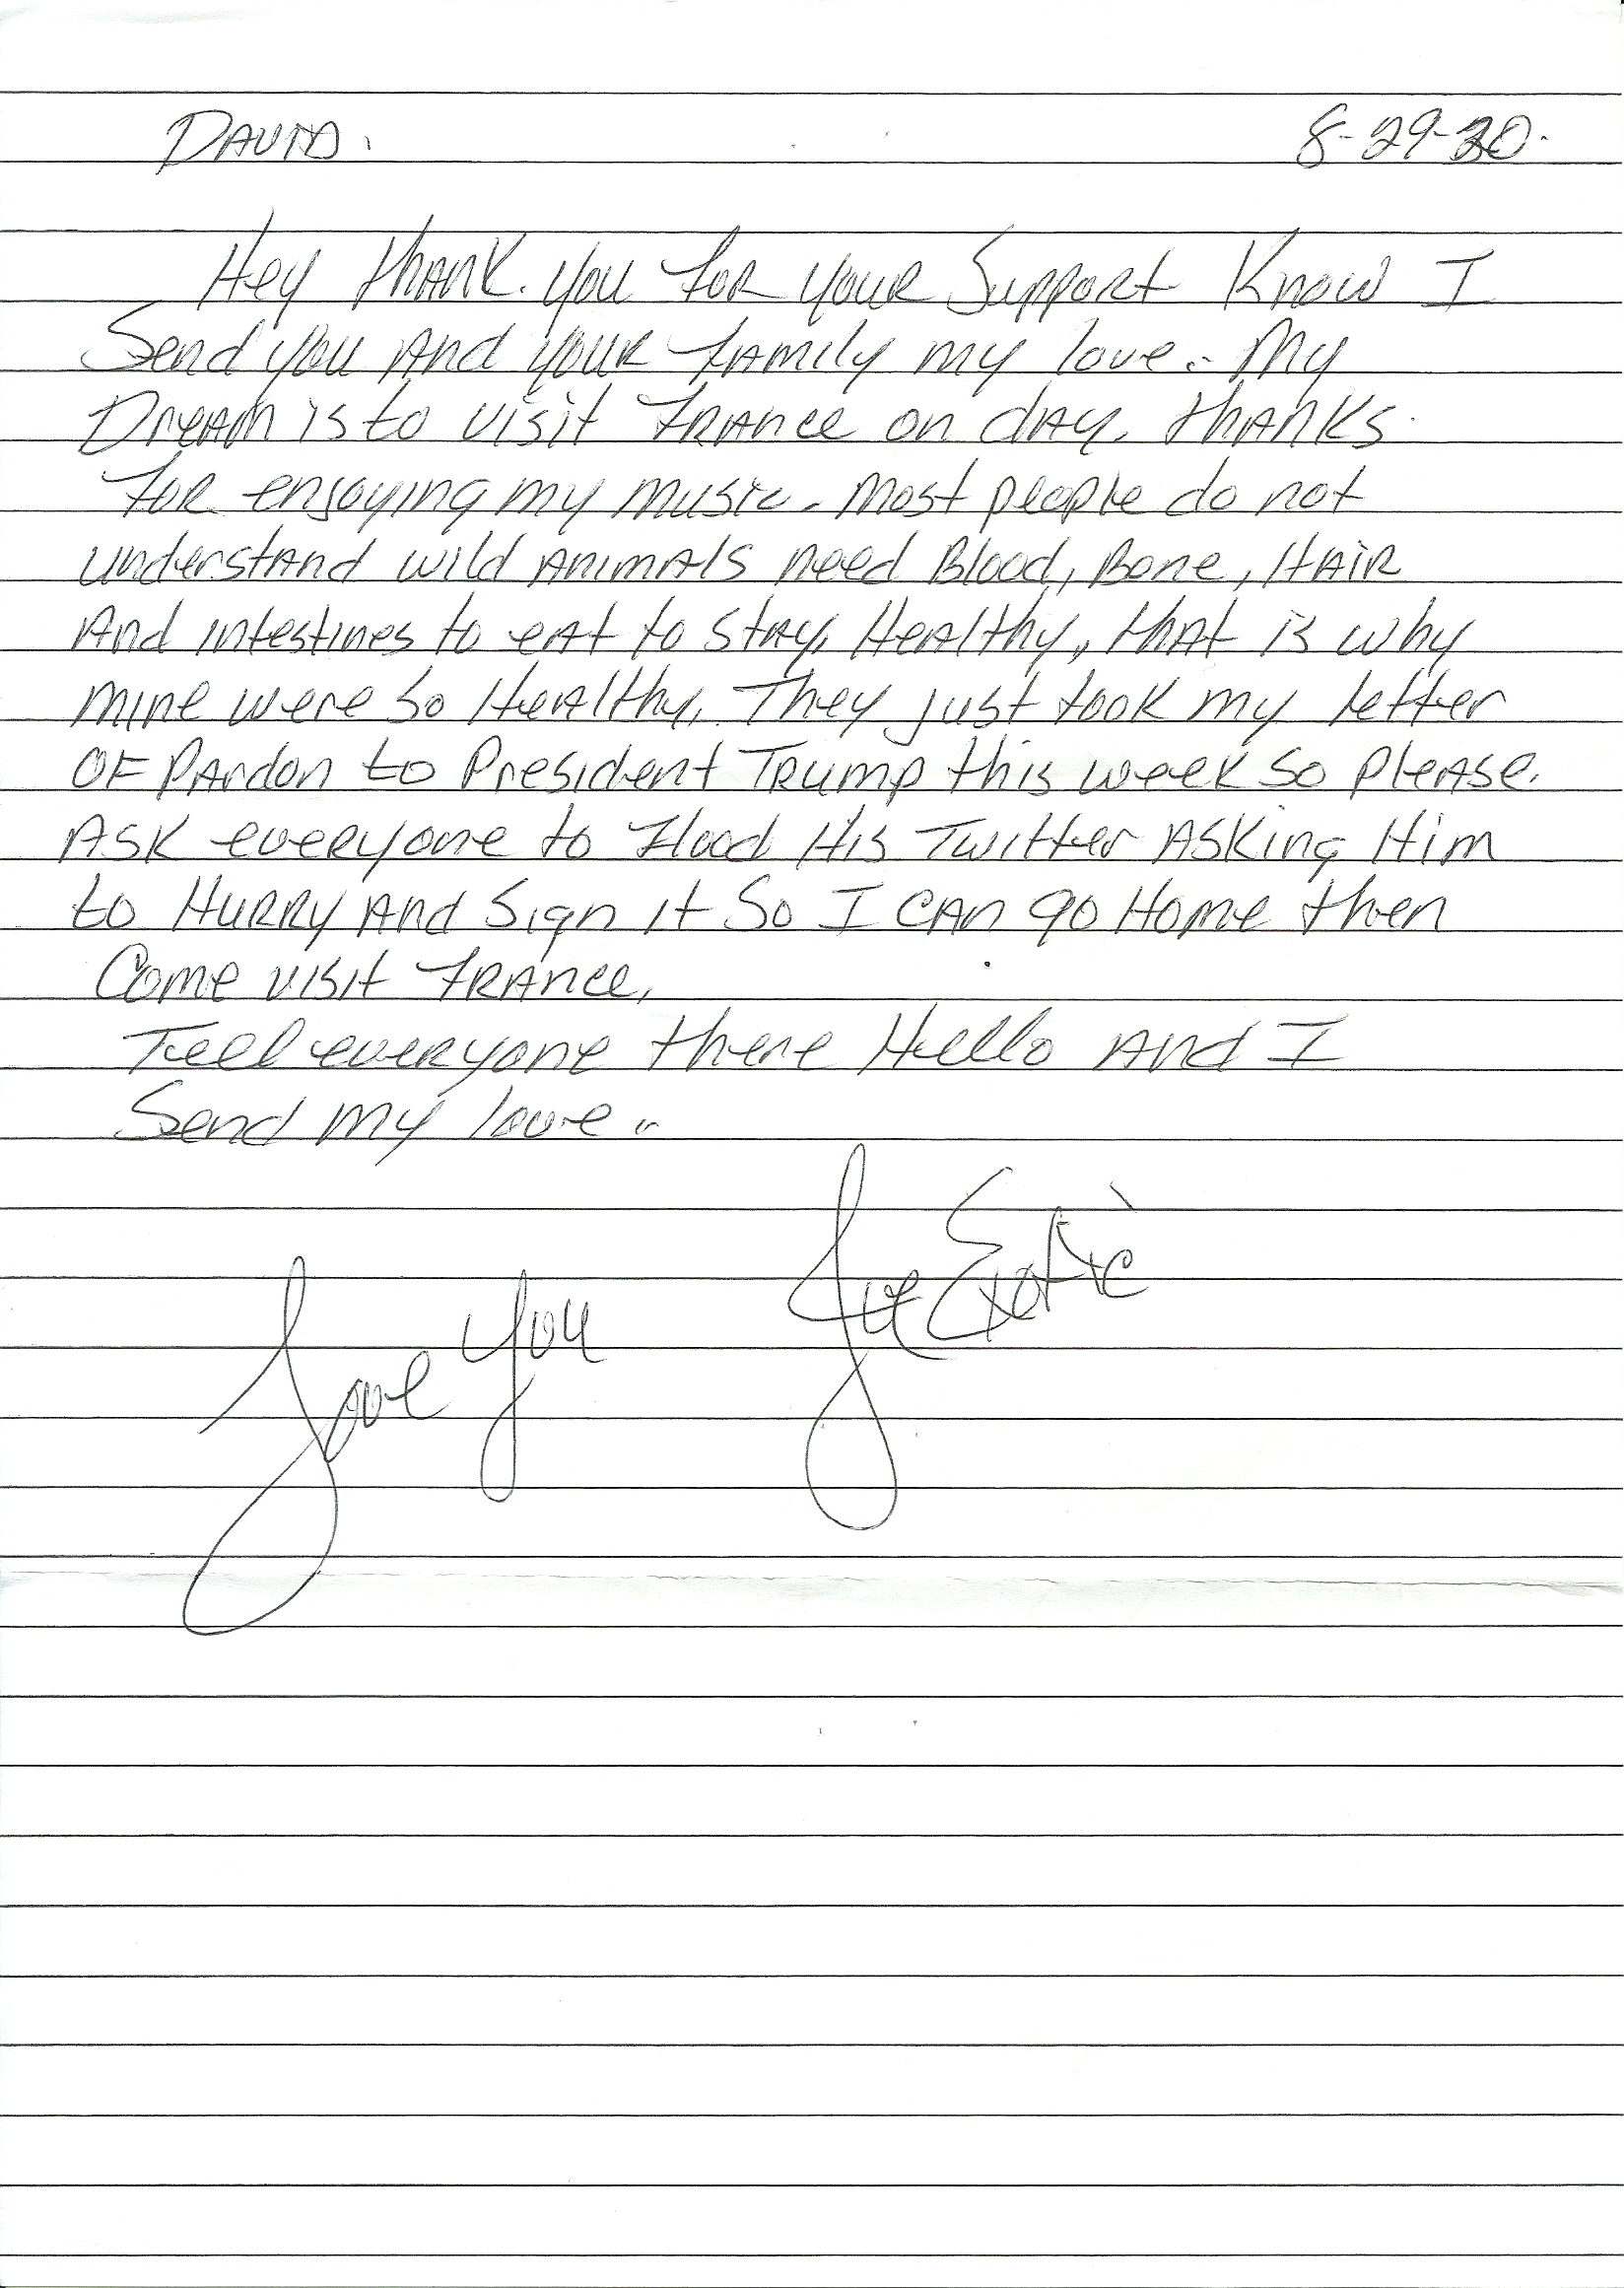 DAVID.
8-29-20.
Hey thank. you for your Support Know I
Send you And your family my love.. My
Dream is to visit France on day. thanks.
for enjoying my music. Most people do not
understand wild Animals need Blood, Bone, Hair
And intestines to eat to stay, Healthy, that is why
mine were so Healthy, They just took my letter
OF Pardon to President Trump this week so please.
Ask everyone to flood His Twitter Asking Him
to Hurry And Sign it So I can go Home then
Come visit France,
Teell everyone there Hello And I
Send my love..
Joe Exotic
Love You